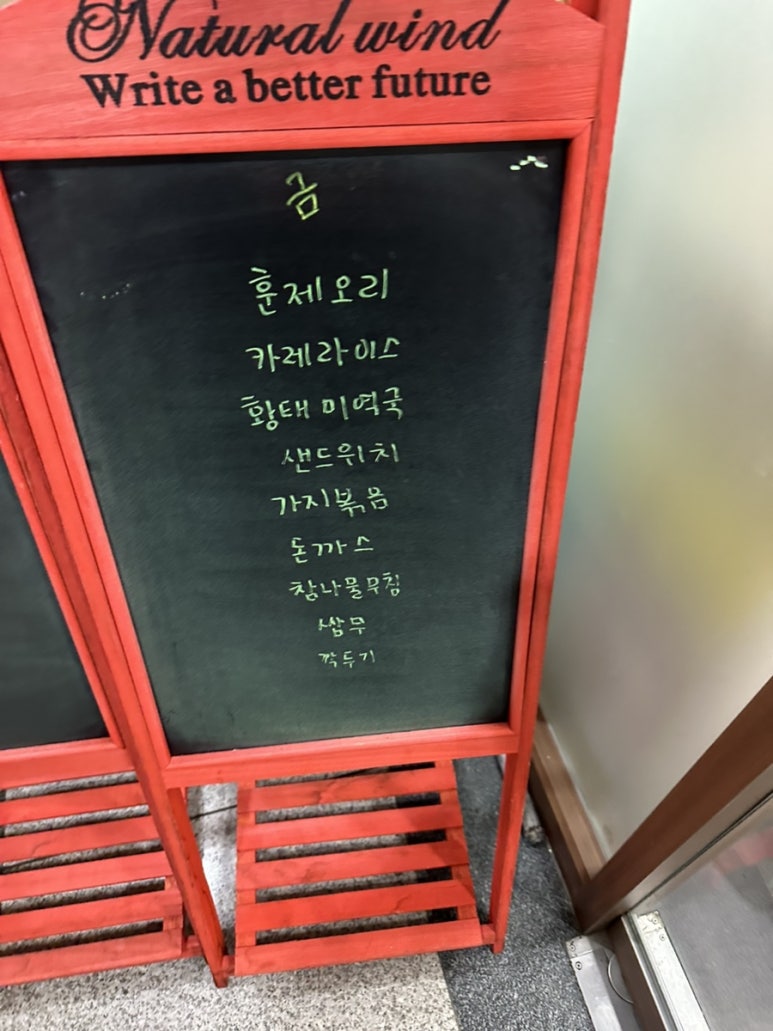 Natural wind
Write a better future
금
훈제오리
카레라이스
황태 미역국
샌드위치
가지볶음
돈까스
참나물무침
쌈무
깍두기